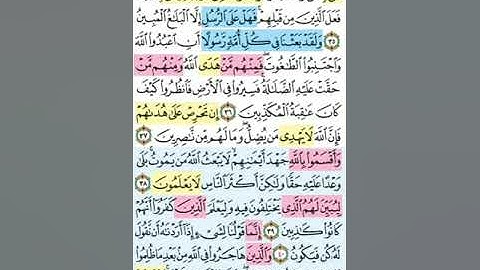 فَعَلَ الَّذِينَ مِن قَبْلِهِمْ فَهَلْ عَلَى الرُّسُلِ إِلَّا الْبَلَاغُ الْمُبِينُ
٣٥ وَلَقَدْ بَعَثْنَا فِي كُلِّ أُمَّةٍ رَّسُولًا أَنِ اعْبُدُوا اللَّهَ
وَاجْتَنِبُوا الطَّاغُوتَ فَمِنْهُم مَّنْ هَدَى اللَّهُ وَمِنْهُم مَّنْ
حَقَّتْ عَلَيْهِ الضَّلَالَةُ فَسِيرُوا فِي الْأَرْضِ فَانظُرُوا كَيْفَ
كَانَ عَاقِبَةُ الْمُكَذِّبِينَ ٣٦ إِن تَحْرِصْ عَلَى هُدَاهُمْ
فَإِنَّ اللَّهَ لَا يَهْدِي مَن يُضِلُّ وَمَا لَهُم مِّن نَّاصِرِينَ ٣٧
وَأَقْسَمُوا بِاللَّهِ جَهْدَ أَيْمَانِهِمْ لَا يَبْعَثُ اللَّهُ مَن يَمُوتُ بَلَى
وَعْدًا عَلَيْهِ حَقًّا وَلَكِنَّ أَكْثَرَ النَّاسِ لَا يَعْلَمُونَ ٣٨
لِيُبَيِّنَ لَهُمُ الَّذِي يَخْتَلِفُونَ فِيهِ وَلِيَعْلَمَ الَّذِينَ كَفَرُوا أَنَّهُمْ
كَانُوا كَاذِبِينَ ٣٩ إِنَّمَا قَوْلُنَا لِشَيْءٍ إِذَا أَرَدْنَاهُ أَن نَّقُولَ
لَهُ كُن فَيَكُونُ ٤٠ وَالَّذِينَ هَاجَرُوا فِي اللَّهِ مِن بَعْدِ مَا ظُلِمُوا